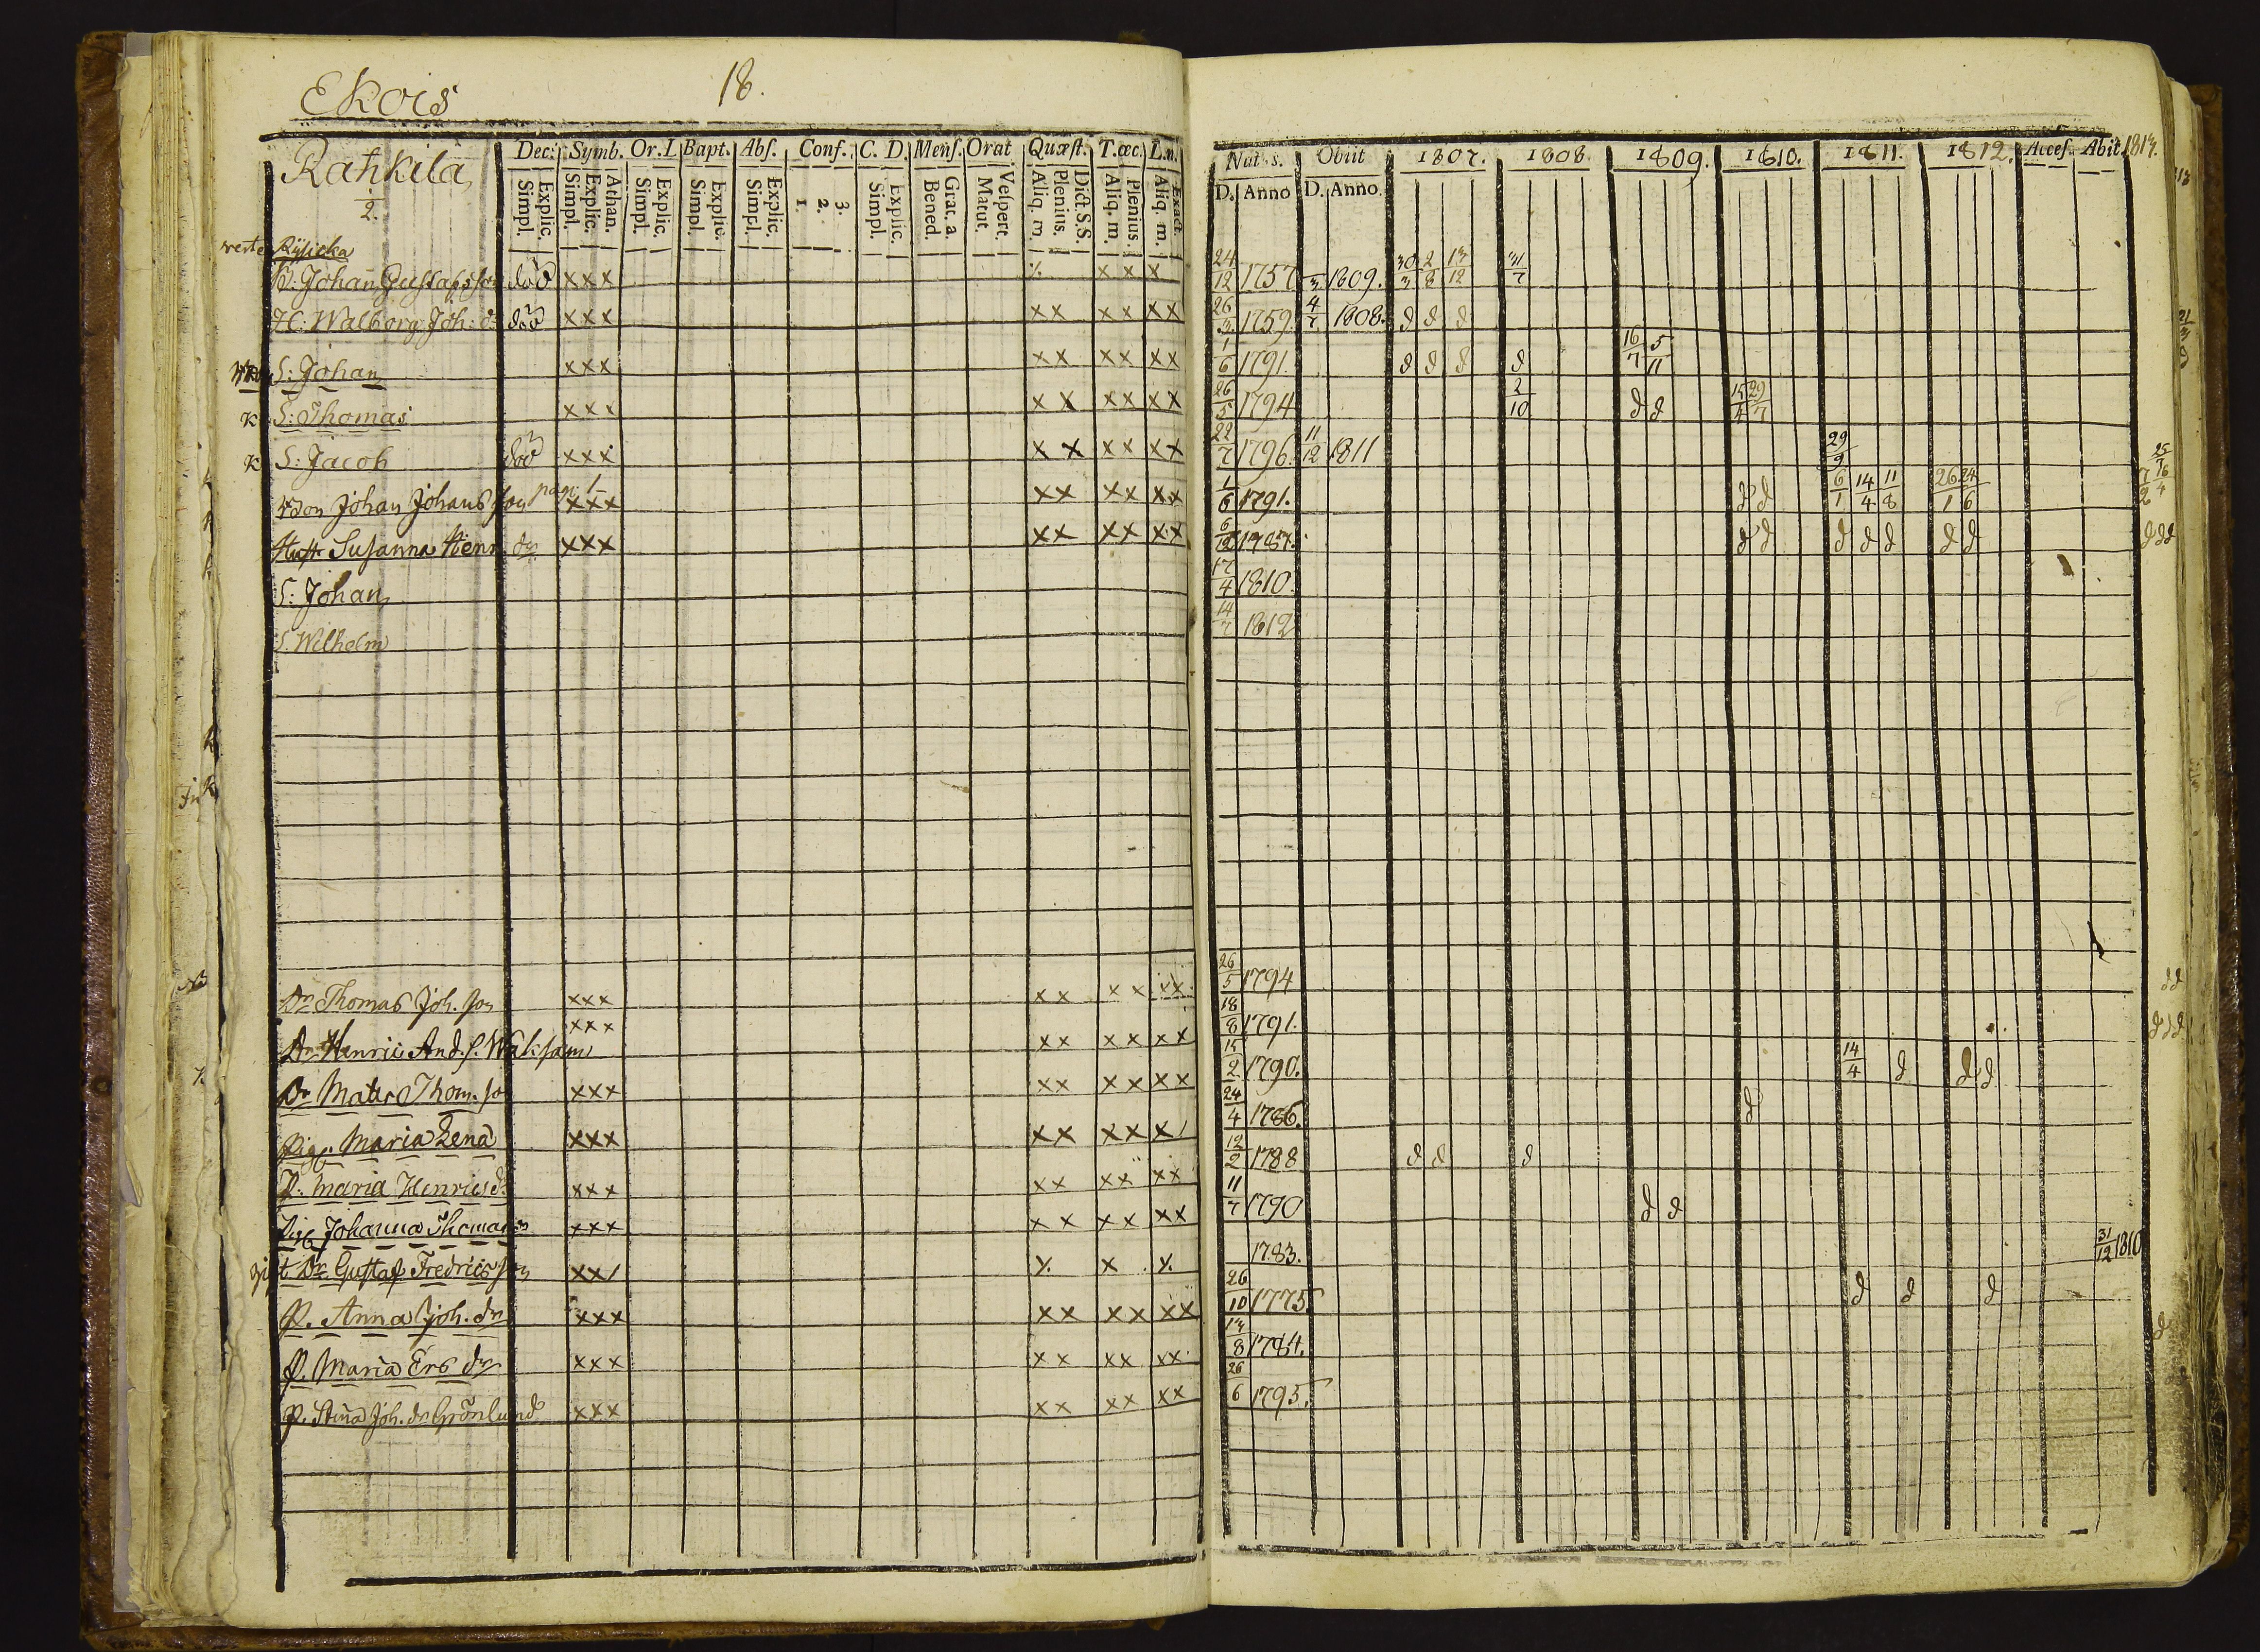 Ekois 18.
Dec. Symb. Or. I. Bapt. Abs. Conf. C. D. Mens. Orat. Quæst. T. œc. L. n.
Simpl. Explic. Simpl. Explic. Athan. Simpl. Explic. Simpl. Explic. Simpl. Explic. 1. 2. 3. Simpl. Explic. Bened. Grat. a. Matut. Vespert. Aliq. m. Plenius. Dict. S. S. Aliq. m. Plenius. Aliq. m. Exact.
Natus. Obiit 1807. 1808. 1809. 1810. 1811. 1812. Acces. Abit. 1813.
D. Anno D. Anno.
Rahkila
2.
B: Johan Gustafsson död xxx x x x 24/12 1757 1809. 30/3 2/8 13/12 31/7
H: Walborg Joh: dr död xxx xx xx xx 26/3 1759 4/7 1808. d d d
S: Johan xxx xx xx xx 1/6 1791. d d d d 16/7 5/11
K S: Thomas xxx xx xx xx 26/5 1794 2/10 d d 15/4 29/7
K S: Jacob död xxx xx xx xx 22/7 1796. 11/12 1811 29/9
Johan Johansson pag. 1 xxx xx xx xx 1/6 1791. d d 6/1 14/4 11/8 26/1 24/6
Hustr Susanna Henr dr xxx xx xx xx 6/12 1787. d d d d d d d d d d
S: Johan 17/4 1810.
S. Wilhelm 14/7 1812
Dr Thomas Joh. son xxx xx xx xx 26/5 1794 d d
Dr Henric And. s. xxx xx xx xx 18/8 1791. d d d
Dr Mats Thom. so xxx xx xx xx 15/2 1790. 14/4 d d d
Pig. Maria Lena xxx xx xx x/ 24/4 1786. d
P. Maria Henricsdr xxx xx xx xx 12/2 1788 d d d
Pig Johanna Thomas xxx xx xx xx 11/7 1790 d d
gift Dr Gustaf Fredricsson xx/ x x x 1783. 31/12 1810
P. Anna Joh. dr xxx xx xx xx 26/10 1775 d d d
P. Maria Ers dr xxx xx xx xx 13/8 1784. d
P. Stina Joh. dr Grönlund xxx xx xx xx 26/6 1795.